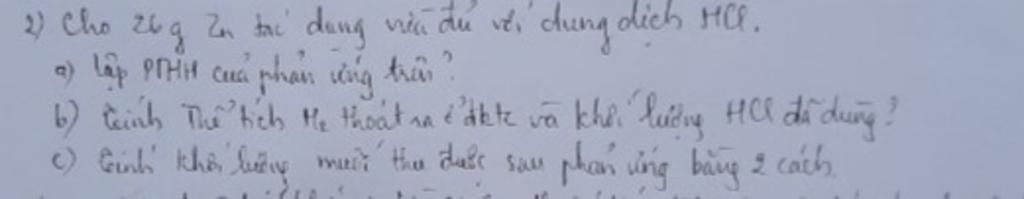 2) Cho 26 g Zn tác dụng vừa đủ với dung dịch HCl.
a) Lập PTHH của phản ứng trên?
b) Tính Thể tích H₂ thoát ra ở đktc và khối lượng HCl đã dùng?
c) Tính khối lượng muối thu được sau phản ứng bằng 2 cách.